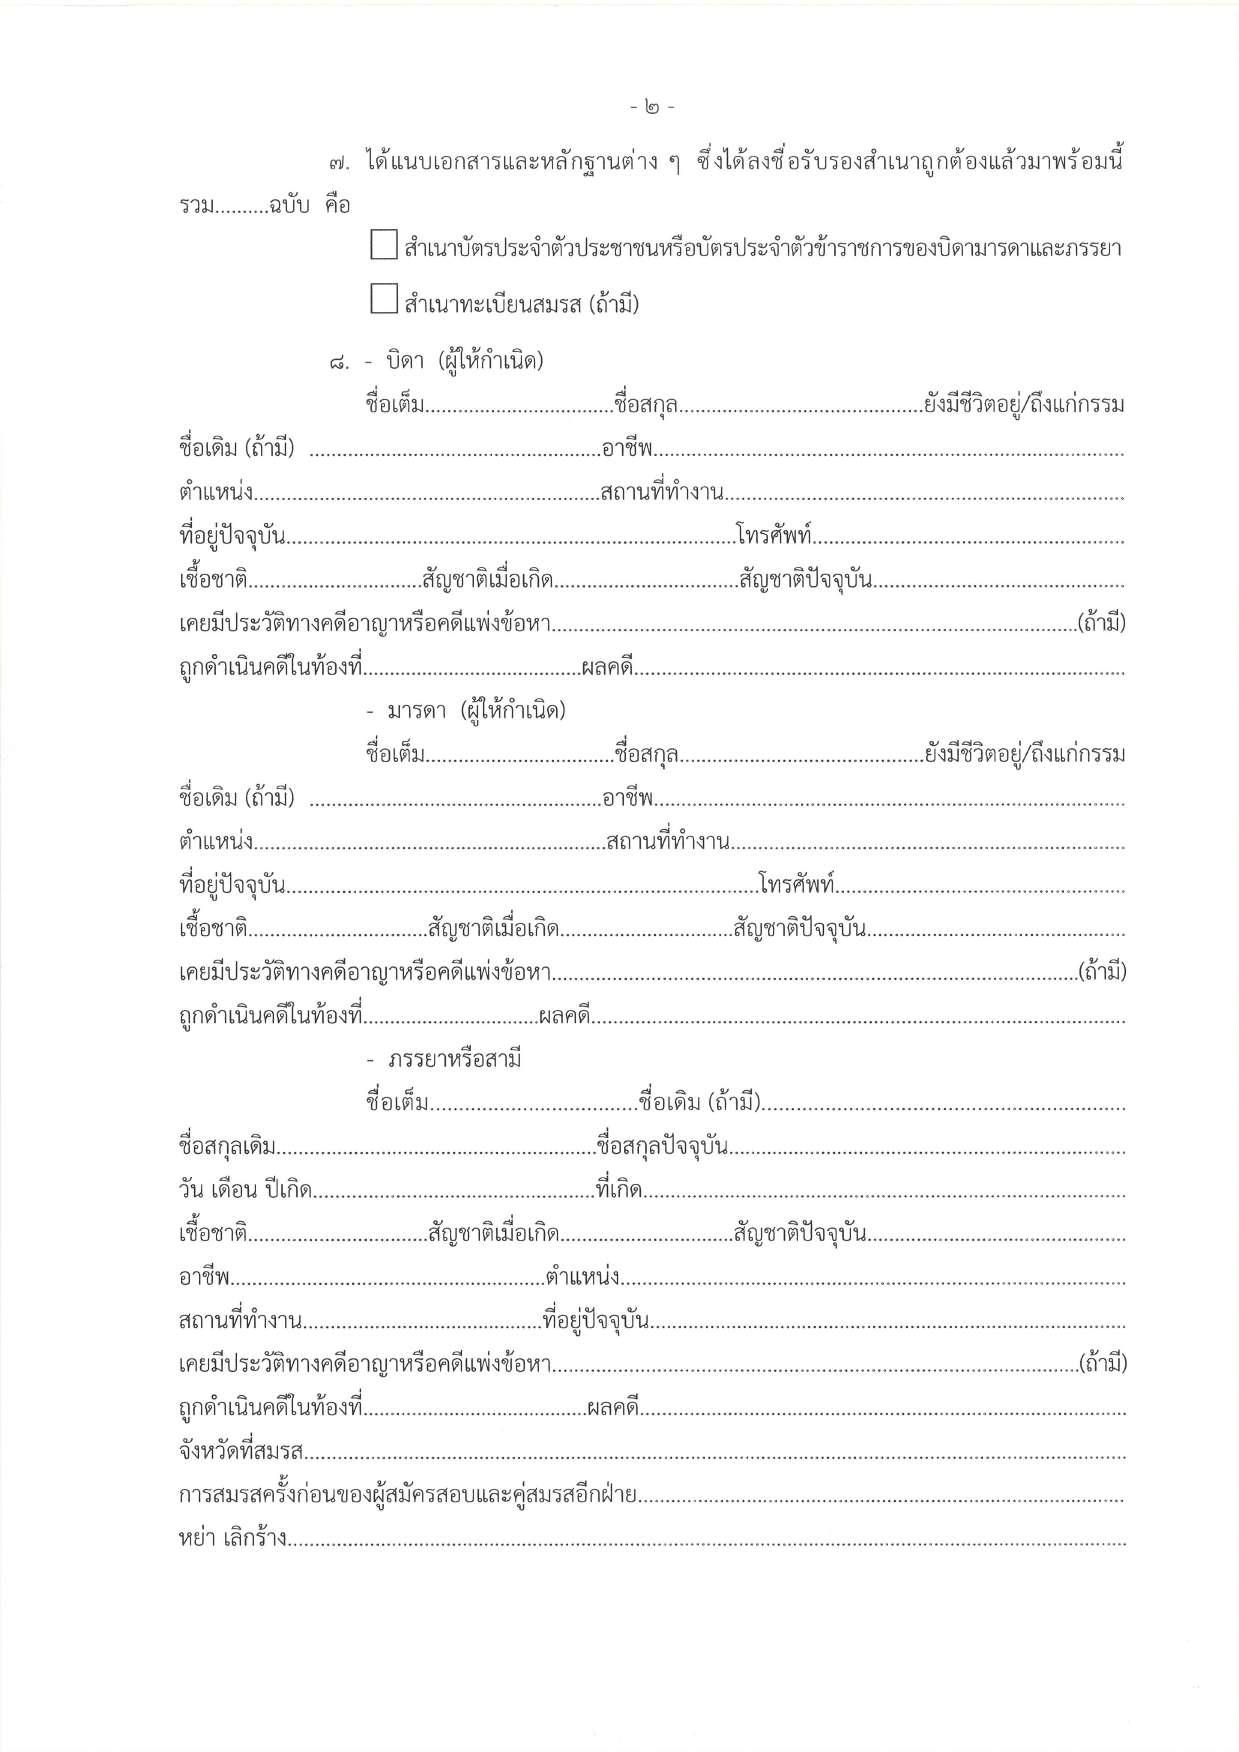 - ๒ -
๗. ได้แนบเอกสารและหลักฐานต่าง ๆ ซึ่งได้ลงชื่อรับรองสำเนาถูกต้องแล้วมาพร้อมนี้
รวม..........ฉบับ คือ
สำเนาบัตรประจำตัวประชาชนหรือบัตรประจำตัวข้าราชการของบิดามารดาและภรรยา
สำเนาทะเบียนสมรส (ถ้ามี)
๘. - บิดา (ผู้ให้กำเนิด)
ชื่อเต็ม..................................ชื่อสกุล............................................ยังมีชีวิตอยู่/ถึงแก่กรรม
ชื่อเดิม (ถ้ามี) .....................................................อาชีพ.....................................................................................
ตำแหน่ง...............................................................สถานที่ทำงาน........................................................................
ที่อยู่ปัจจุบัน.................................................................................โทรศัพท์.........................................................
เชื้อชาติ...............................สัญชาติเมื่อเกิด.................................สัญชาติปัจจุบัน.............................................
เคยมีประวัติทางคดีอาญาหรือคดีแพ่งข้อหา...............................................................................................(ถ้ามี)
ถูกดำเนินคดีในท้องที่.......................................ผลคดี........................................................................................
- มารดา (ผู้ให้กำเนิด)
ชื่อเต็ม..................................ชื่อสกุล............................................ยังมีชีวิตอยู่/ถึงแก่กรรม
ชื่อเดิม (ถ้ามี) .....................................................อาชีพ.....................................................................................
ตำแหน่ง................................................................สถานที่ทำงาน.......................................................................
ที่อยู่ปัจจุบัน.....................................................................................โทรศัพท์.....................................................
เชื้อชาติ................................สัญชาติเมื่อเกิด...............................สัญชาติปัจจุบัน..............................................
เคยมีประวัติทางคดีอาญาหรือคดีแพ่งข้อหา...............................................................................................(ถ้ามี)
ถูกดำเนินคดีในท้องที่................................ผลคดี................................................................................................
- ภรรยาหรือสามี
ชื่อเต็ม.....................................ชื่อเดิม (ถ้ามี)..................................................................
ชื่อสกุลเดิม..........................................................ชื่อสกุลปัจจุบัน........................................................................
วัน เดือน ปีเกิด...................................................ที่เกิด.......................................................................................
เชื้อชาติ................................สัญชาติเมื่อเกิด...............................สัญชาติปัจจุบัน..............................................
อาชีพ.........................................................ตำแหน่ง...........................................................................................
สถานที่ทำงาน...........................................ที่อยู่ปัจจุบัน......................................................................................
เคยมีประวัติทางคดีอาญาหรือคดีแพ่งข้อหา...............................................................................................(ถ้ามี)
ถูกดำเนินคดีในท้องที่........................................ผลคดี.......................................................................................
จังหวัดที่สมรส....................................................................................................................................................
การสมรสครั้งก่อนของผู้สมัครสอบและคู่สมรสอีกฝ่าย........................................................................................
หย่า เลิกร้าง.......................................................................................................................................................